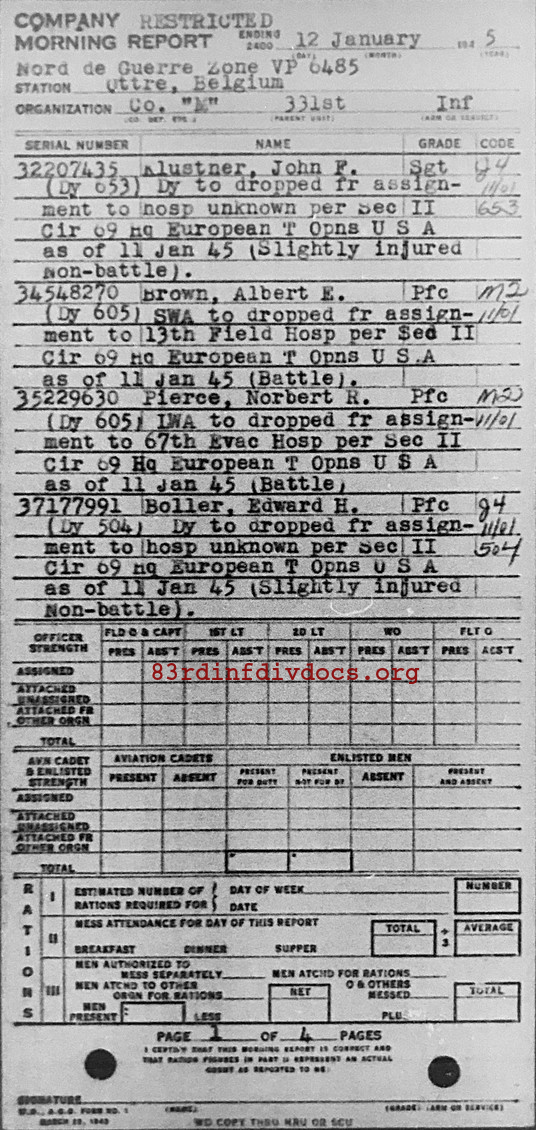 COMPANY RESTRICTED
MORNING REPORT ENDING 2400 12 January 194 5
(DAY) (MONTH) (YEAR)
Nord de Guerre Zone VP 6485
STATION Ottre, Belgium
ORGANIZATION Co. "M" 331st Inf
(CO. DET. ETC.) (PARENT UNIT) (ARM OR SERVICE)
SERIAL NUMBER NAME GRADE CODE
32207435 Klustner, John F. Sgt g4
(Dy 653) Dy to dropped fr assign- 11/01
ment to hosp unknown per Sec II 653
Cir 69 Hq European T Opns U S A
as of 11 Jan 45 (Slightly injured
Non-battle).
34548270 Brown, Albert E. Pfc M2
(Dy 605) SWA to dropped fr assign- 11/01
ment to 13th Field Hosp per Sec II
Cir 69 Hq European T Opns U S.A
as of 11 Jan 45 (Battle).
35229630 Pierce, Norbert R. Pfc M2
(Dy 605) LWA to dropped fr assign- 11/01
ment to 67th Evac Hosp per Sec II
Cir 69 Hq European T Opns U S A
as of 11 Jan 45 (Battle)
37177991 Boller, Edward H. Pfc g4
(Dy 504) Dy to dropped fr assign- 11/01
ment to hosp unknown per Sec II 504
Cir 69 Hq European T Opns U S A
as of 11 Jan 45 (Slightly injured
Non-battle).
OFFICER STRENGTH FLD O & CAPT 1ST LT 2D LT WO FLT O
PRES ABS'T PRES ABS'T PRES ABS'T PRES ABS'T PRES ABS'T
ASSIGNED
83rdinfdivdocs.org
ATTACHED UNASSIGNED
ATTACHED FR OTHER ORGN
TOTAL
AVN CADET & ENLISTED STRENGTH AVIATION CADETS ENLISTED MEN
PRESENT ABSENT PRESENT FOR DUTY PRESENT NOT FOR DY ABSENT PRESENT AND ABSENT
ASSIGNED
ATTACHED UNASSIGNED
ATTACHED FR OTHER ORGN
TOTAL
RATIONS
I ESTIMATED NUMBER OF RATIONS REQUIRED FOR DAY OF WEEK DATE NUMBER
II MESS ATTENDANCE FOR DAY OF THIS REPORT TOTAL ÷ 3 AVERAGE
BREAKFAST DINNER SUPPER
III MEN AUTHORIZED TO MESS SEPARATELY MEN ATCHD FOR RATIONS
MEN ATCHD TO OTHER ORGN FOR RATIONS NET O & OTHERS MESSED TOTAL
MEN PRESENT LESS PLUS
PAGE 1 OF 4 PAGES
I CERTIFY THAT THIS MORNING REPORT IS CORRECT AND
THAT RATION FIGURES IN PART II REPRESENT AN ACTUAL
COUNT AS REPORTED TO ME:
SIGNATURE
W.D., A.G.O. FORM NO. 1 (NAME) (GRADE) (ARM OR SERVICE)
WD COPY THRU MRU OR SCU